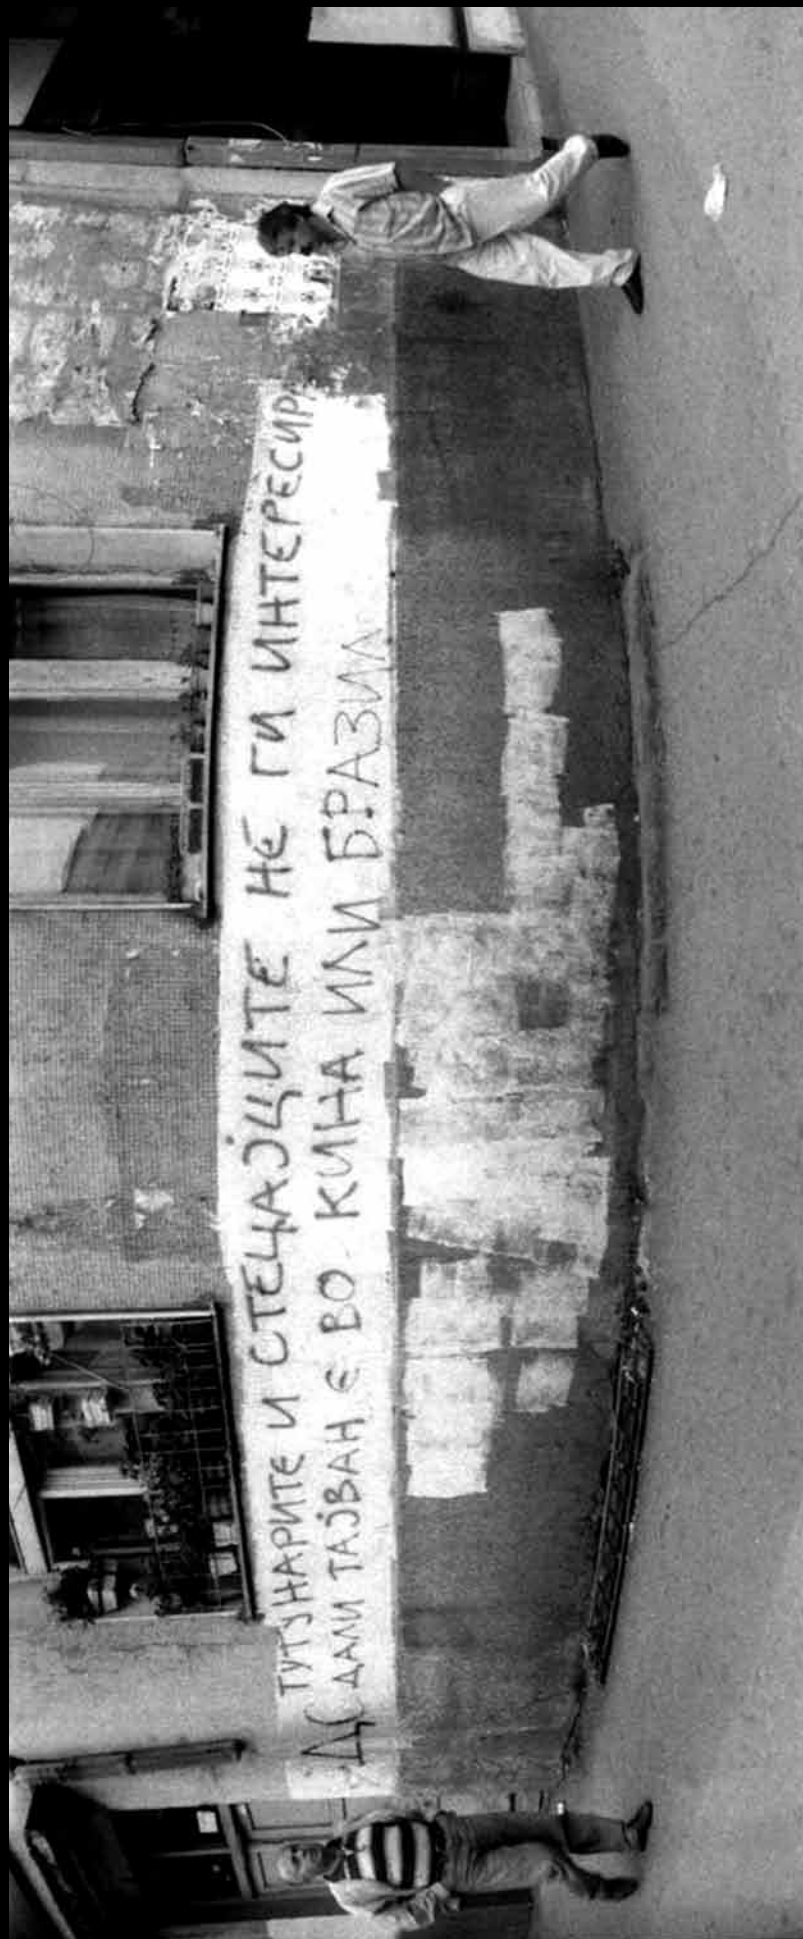 ТУТУНАРИТЕ И СТЕЧАЈЦИТЕ НЕ ГИ ИНТЕРЕСИРА
ДС ДАЛИ ТАЈВАН Е ВО КИНА ИЛИ БРАЗИЛ